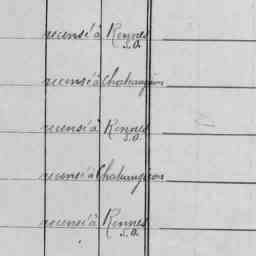 recensé à Rennes
S.O.
recensé à Chateaugiron
recensé à Rennes
S.O.
recensé à Chateaugiron
recensé à Rennes
S.O.